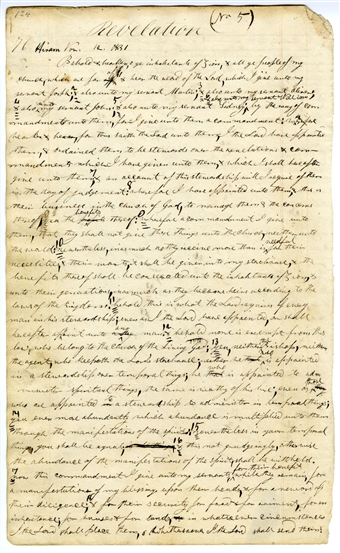 124
(No 5)
Revelation
76 Hiram Nov. 12. 1831
Behold & hearken ye inhabitants of Zion, & all ye people of my
church, which are far off & hear the word of the Lord, which I give unto my
servant Joseph, & also unto my servant Martin, & also unto my servant Oliver,
& also unto my servant John, & also unto my servant Sidney, & also unto my servant William by the way of com
mandment unto them, for I give unto them a commandment; wherefore
hearken & hear, for thus saith the Lord unto them, I the Lord have appointed
them, & ordained them to be stewards over the revelations & com-
mandments which I have given unto them, & which I shall hereafter
give unto them; & an account of this stewardship will I require of them
in the day of judgement; wherefore I have appointed unto them, this is
their business in the Church of God, to manage them & the concerns
thereof, yea the benefits thereof, wherefore a commandment I give unto
them, that they shall not give these things unto the church, neither unto
the world; nevertheless, inasmuch as they receive more than is needful for their
necessities & their wants, it shall be given into my storehouse, & the
benefits thereof shall be consecrated unto the inhabitants of Zion, &
unto their generations, inasmuch as they become heirs according to the
laws of the Kingdom; behold this is what the Lord requires of every
man in his stewardship, even as I the Lord have appointed, or shall
hereafter appoint unto any man; behold none is exempt from this
law, who belong to the church of the Living God; yea neither the bishop, neither
the agent, who keepeth the Lord's storehouse; neither he who is appointed
in a stewardship over temporal things; he that is appointed to ad-
minister spiritual things, the same is worthy of his hire, even as those
who are appointed in a stewardship to administer in temporal things;
yea even more abundantly, which abundance is multiplied unto them
through the manifestations of the spirit; nevertheless in your temporal
things, you shall be equal, & this not grudgingly, otherwise
the abundance of the manifestations of the spirit shall be withheld;
now this commandment I give unto my servants for their benefit while they remain, for
a manifestation of my blessings upon their heads, & for a reward of
their diligence, & for their security, for food & for raiment, for an
inheritance, for houses & for lands, in whatsoever circumstances
I the Lord shall place them, & whithersoever I the Lord shall send them;